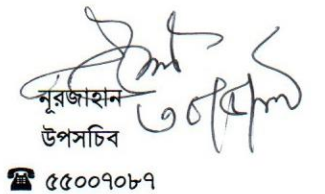 নূরজাহান
উপসচিব
☎ ৫৫০০৭০৮৭